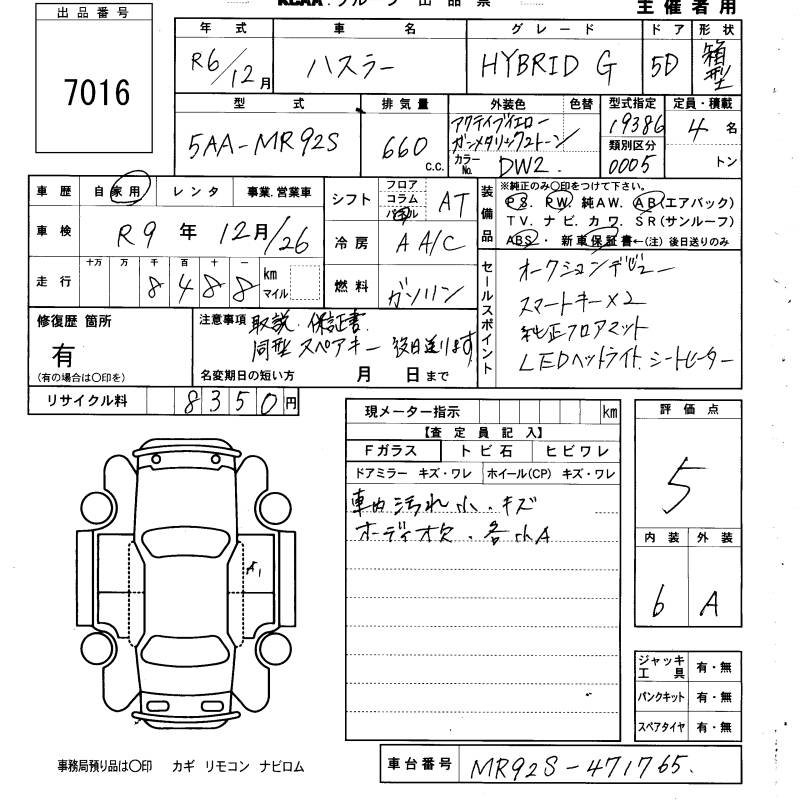 KCAA グループ 出品票
主催者用
出品番号
7016
年式 車名 グレード ドア 形状
R6/12月 ハスラー HYBRID G 5D 箱型
型式 排気量 外装色 色替 型式指定 定員・積載
5AA-MR92S 660 c.c. アクティブイエロー ガンメタリック2トーン 19386 4名
カラーNo. DW2. 類別区分 0005 トン
車歴 自家用 レンタ 事業.営業車
シフト フロア コラム パネル AT
装備品 ※純正のみ〇印をつけて下さい。
PS. PW. 純AW. AB(エアバック)
TV. ナビ. カワ. SR(サンルーフ)
ABS ・ 新車保証書←(注) 後日送りのみ
車検 R9年 12月/26
冷房 A A/C
走行 十万 万 千 百 十 一
8488 km マイル
燃料 ガソリン
セールスポイント
オークションデビュー
スマートキー×2
純正フロアマット
LEDヘッドライト. シートヒーター
修復歴 箇所
有
(有の場合は〇印を)
注意事項 取説. 保証書.
同型 スペアキー 後日送ります
名変期日の短い方 月 日まで
リサイクル料 8350円
現メーター指示 km
【査定員記入】
Fガラス トビ石 ヒビワレ
ドアミラー キズ・ワレ ホイール(CP) キズ・ワレ
車内汚れ小. キズ
オーディオ欠. 各小A
評価点
5
内装 外装
6 A
A1
ジャッキ工具 有・無
パンクキット 有・無
スペアタイヤ 有・無
事務局預り品は〇印 カギ リモコン ナビロム
車台番号 MR92S-471765.